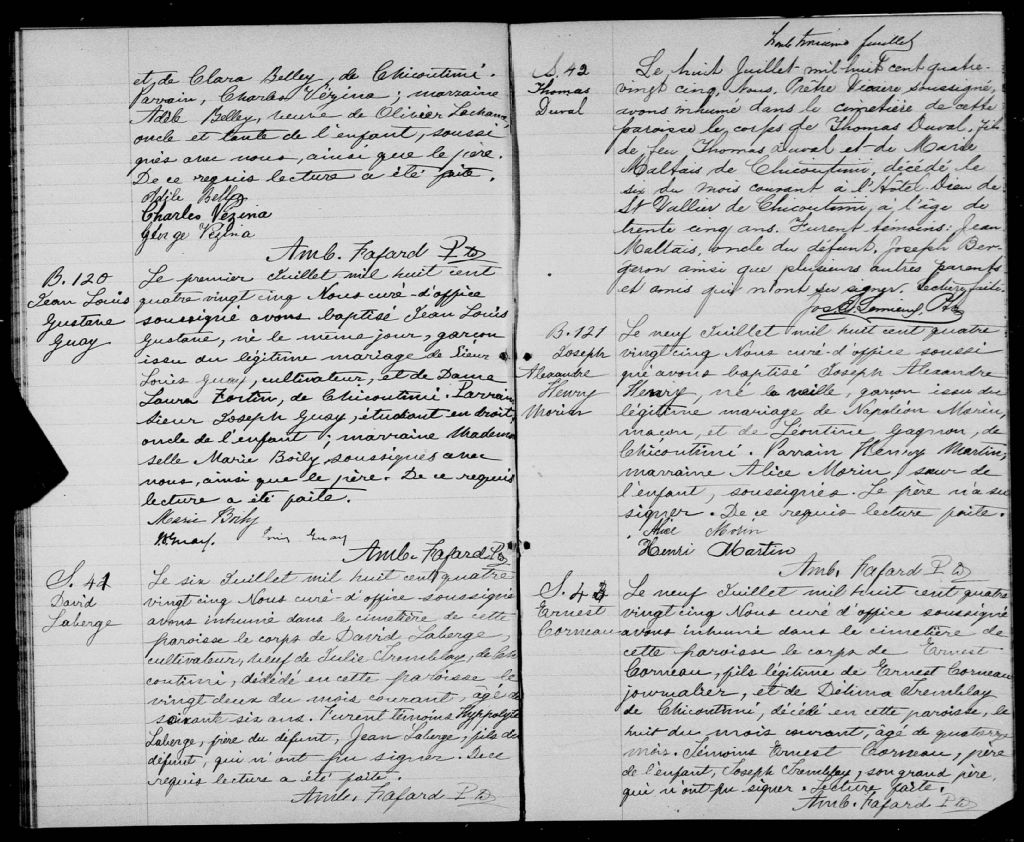 et de Clara Belley, de Chicoutimi.
Parrain, Charles Vézina; marraine
Adèle Belley, veuve de Olivier Lachance,
oncle et tante de l'enfant, soussi
gnés avec nous, ainsi que le père.
De ce requis lecture a été faite.
Adèle Belley
Charles Vézina
George Vézina
Amb. Fafard Ptr
B. 120
Jean Louis
Gustave
Guay
Le premier Juillet mil huit cent
quatre vingt cinq Nous curé-d'office
soussigné avons baptisé Jean Louis
Gustave, né le même jour, garçon
issu du légitime mariage de Sieur
Louis Guay, cultivateur, et de Dame
Laura Fortin, de Chicoutimi. Parrain
Sieur Joseph Guay, étudiant en droit,
oncle de l'enfant; marraine Mademoi
selle Marie Boily, soussignés avec
nous, ainsi que le père. De ce requis
lecture a été faite.
Marie Boily
Guay. Louis Guay
Amb. Fafard Ptr
S. 41
David
Laberge
Le six Juillet mil huit cent quatre
vingt cinq Nous curé-d'office soussigné
avons inhumé dans le cimetière de cette
paroisse le corps de David Laberge,
cultivateur, veuf de Julie Tremblay, de Chi
coutimi, décédé en cette paroisse le
vingt deux du mois courant, agé de
soixante six ans. Furent témoins Hyppolyte
Laberge, frère du défunt, Jean Laberge, fils du
défunt, qui n'ont pu signer. De ce
requis lecture a été faite.
Amb. Fafard Ptr
feuillet
S. 42
Thomas
Duval
Le huit Juillet mil huit cent quatre-
vingt cinq Nous, Prêtre Vicaire soussigné,
avons inhumé dans le cimetière de cette
paroisse le corps de Thomas Duval, fils
de feu Thomas Duval et de Marie
Maltais de Chicoutimi, décédé le
six du mois courant à l'Hôtel-Dieu de
St Vallier de Chicoutimi, à l'âge de
trente cinq ans. Furent témoins: Jean
Maltais, oncle du défunt, Joseph Ber-
geron ainsi que plusieurs autres parents
et amis qui n'ont su signer. Lecture faite.
Ptr
B. 121
Joseph
Alexandre
Henry
Morin
Le neuf Juillet mil huit cent quatre
vingt cinq Nous curé-d'office soussi
gné avons baptisé Joseph Alexandre
Henry, né la veille, garçon issu du
légitime mariage de Napoléon Morin,
maçon, et de Léontine Gagnon, de
Chicoutimi. Parrain Henry Martin;
marraine Alice Morin sœur de
l'enfant, soussignés. Le père n'a su
signer. De ce requis lecture faite.
Alice Morin
Henri Martin
Amb. Fafard Ptr
S. 43
Ernest
Corneau
Le neuf Juillet mil huit cent quatre
vingt cinq Nous curé d'office soussigné
avons inhumé dans le cimetière de
cette paroisse le corps de Ernest
Corneau, fils légitime de Ernest Corneau
journalier, et de Délima Tremblay
de Chicoutimi, décédé en cette paroisse, le
huit du mois courant, âgé de quatorze
mois. Témoins Ernest Corneau, père
de l'enfant, Joseph Tremblay, son grand père,
qui n'ont pu signer. Lecture faite.
Amb. Fafard Ptr